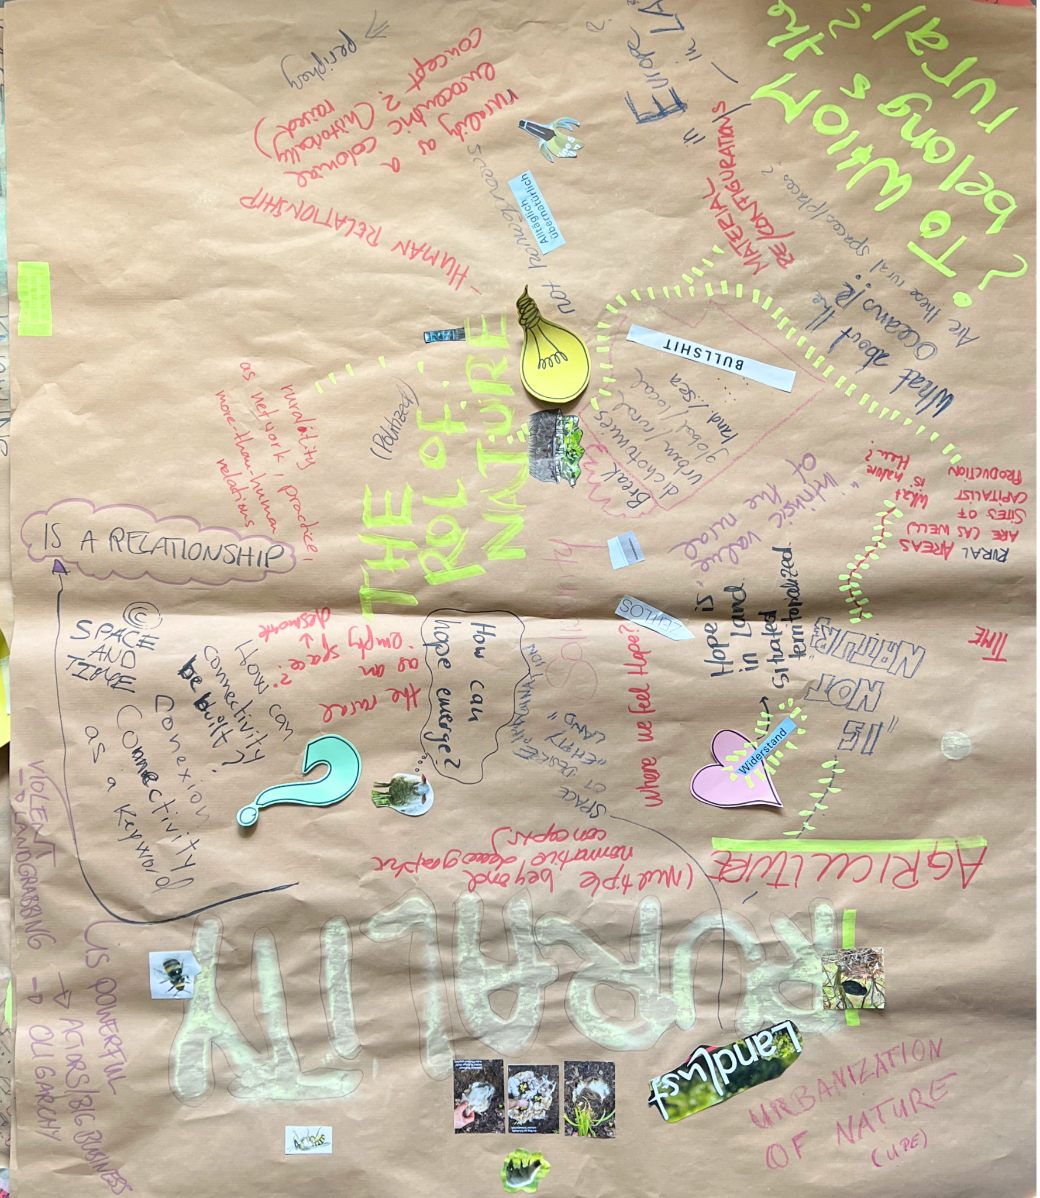 ? TO WHOM
belongs the
rural?
Europe?
– in LA?
periphery
rurality as a
eurocentric colonial
concept? (historically
raised)
– HUMAN RELATIONSHIP
not homogeneous
Alltäglich
übernatürlich
MATERIAL
RE/CONFIGURATIONS
in
What about the
Oceans?
Are these rural spaces/places?
BULLSHIT
Break
dichotomies
urban/rural
global/local
land/sea
THE
ROL OF:
NATURE
(Politized)
rurality
as network, practice,
more-than-human
relations
IS A RELATIONSHIP
"intrinsic value"
of the rural
What
is nature
then?
RURAL AREAS
ARE (AS WELL)
SITES OF
CAPITALIST
PRODUCTION
TIME
"NATUR"
NOT
IS"
Hope is
in Land
situated
territorialized
Widerstand
ZEITLOS
when do we feel hope?
How can
hope emerge?
the rural
as an
"empty space"?
↓
desmonte
SPACE
OF DESIRE/
"EMPTY
LAND"
© SPACE
AND
TIME
How can
connectivity
be built?
Conexion
Connectivity
as a
keyword
AGRICULTURE
(multiple beyond
normative/geographic
concepts)
RURALITY
VIOLENT
→ LANDGRABBING → OLIGARCHY
IS POWERFUL
→ ACTORS/BIG BUSINESS
Landlust
URBANIZATION
OF NATURE
(UPE)